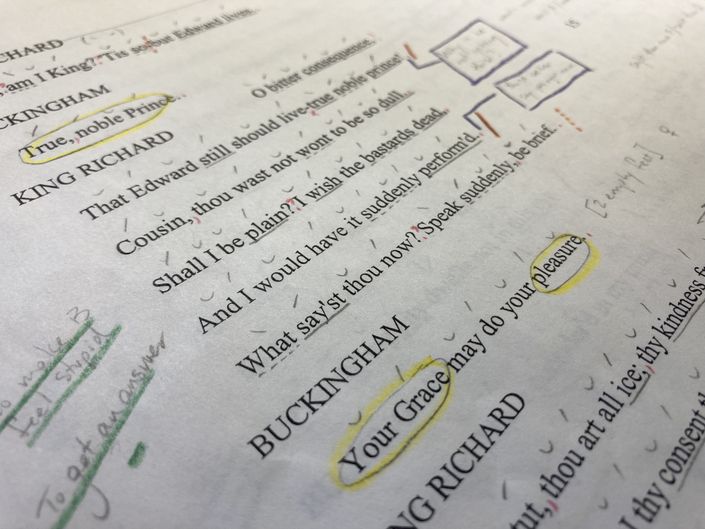 CHARD
am I King? 'Tis so; but Edward lives.
CKINGHAM
True, noble Prince.
KING RICHARD
O bitter consequence,
That Edward still should live-true noble prince!
Cousin, thou wast not wont to be so dull.
Shall I be plain? I wish the bastards dead,
And I would have it suddenly perform'd.
What say'st thou now? Speak suddenly, be brief.
BUCKINGHAM
Your Grace may do your pleasure.
NG RICHARD
thou art all ice; thy kindness f
thy consent t
[2 empty feet]
make B
feel stupid
To get an answer